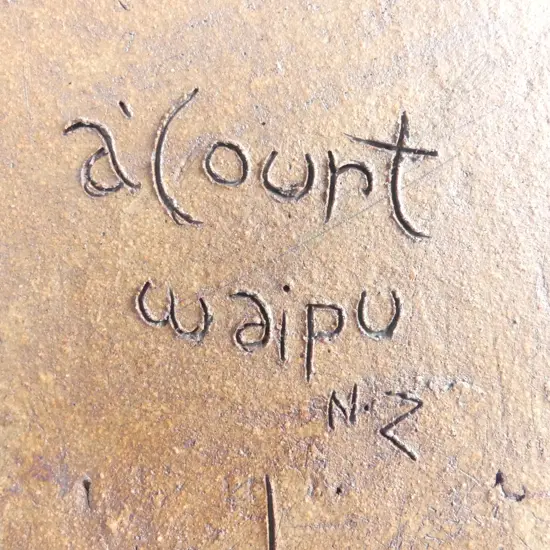 a'Court
waipu
N.Z